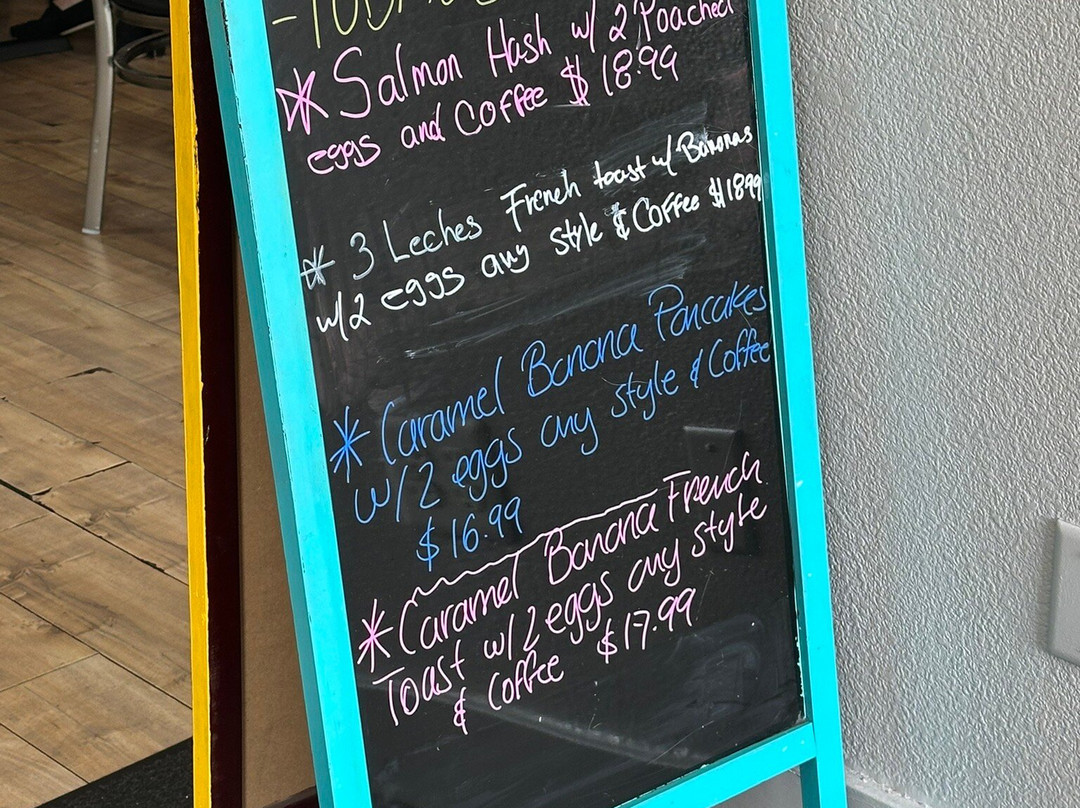 * Salmon Hash w/ 2 Poached
eggs and Coffee $18.99
* 3 Leches French toast w/ Bananas
w/2 eggs any style & Coffee $18.99
* Caramel Banana Pancakes
w/2 eggs any style & Coffee
$16.99
* Caramel Banana French
Toast w/ 2 eggs any style
& Coffee $17.99